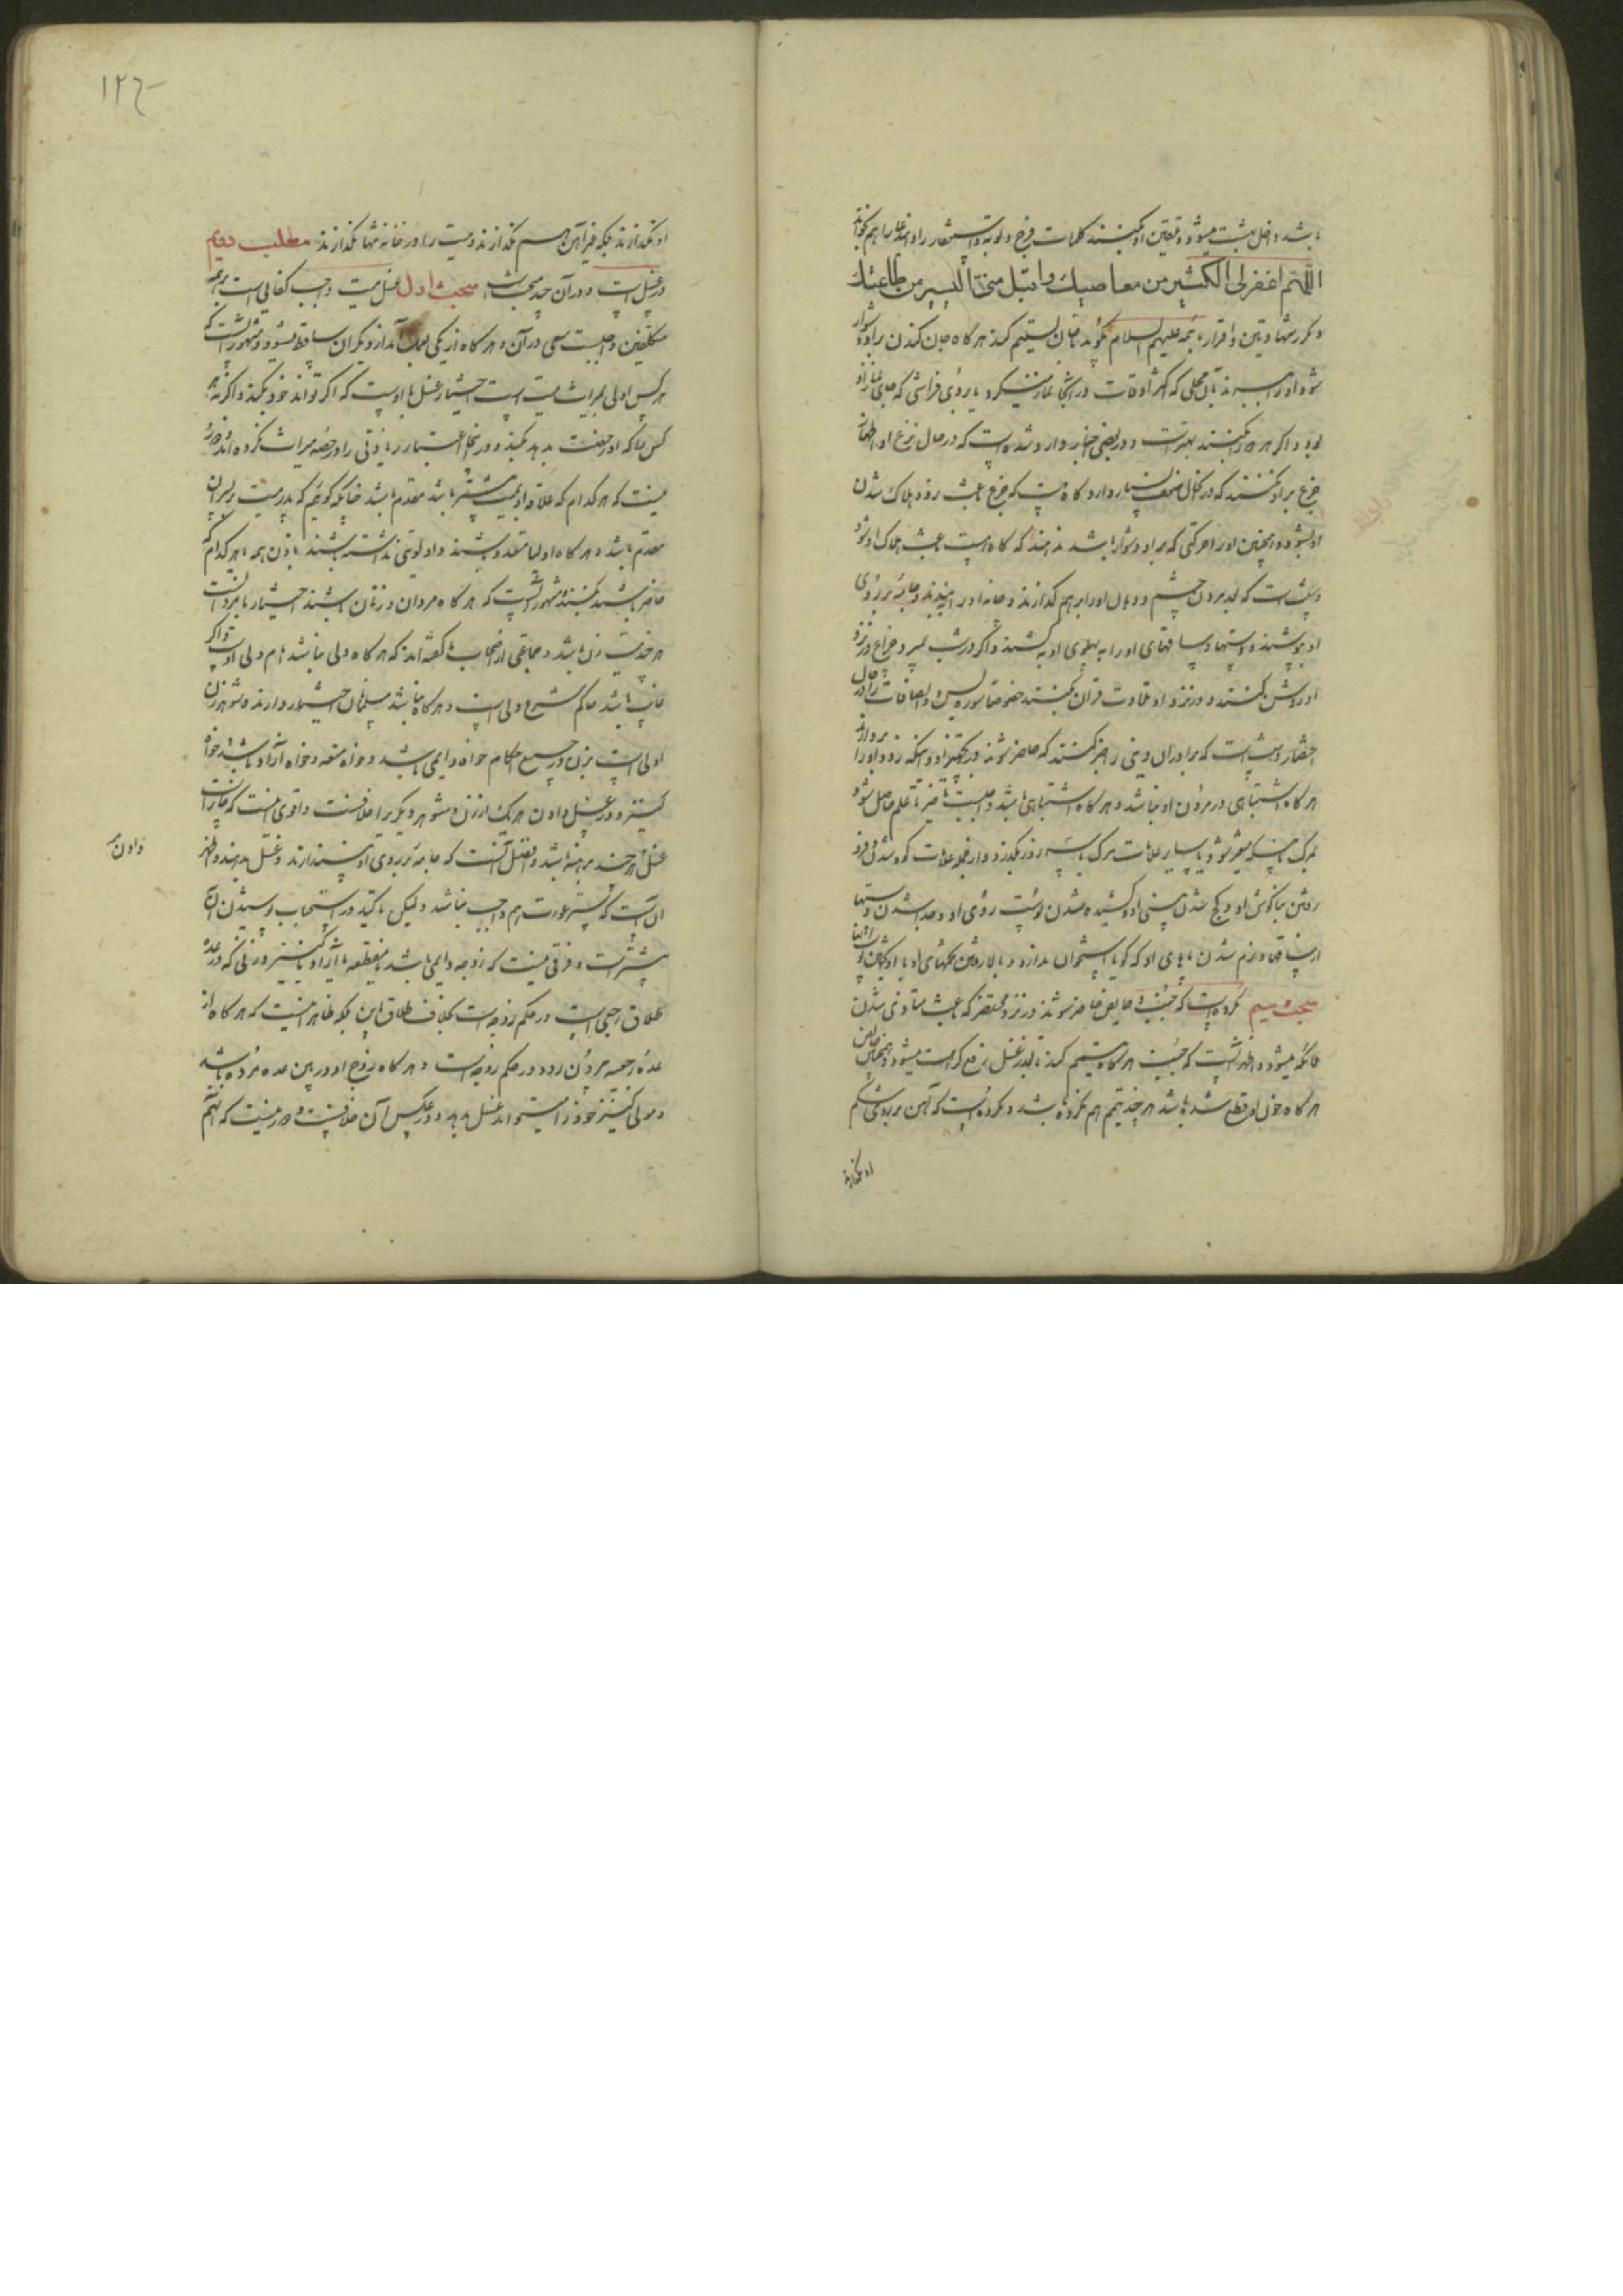 باشد داخل بهشت میشود و تلقین او کنند کلمات فرج و توبه و استغفار را و این دعا را هم بخواند
اللهم اغفر لی الکثیر من معاصیك واقبل منی الیسیر من طاعتك
و مکرر شهادتین و اقرار بائمه علیهم السلام بگوید تا جان تسلیم کند هر گاه جان کندن بر او دشوار
شود او را ببرند بآن محلی که اکثر اوقات در آنجا نماز میکرد یا بر روی فراشی که جای نماز او
بود و اگر هر دو را بکنند بهتر است و در بعضی اخبار وارد شده است که در حال نزع او اظهار
جزع بر او نکنند که در کمال ضعف بسیار دارد و گاه هست که جزع باعث زود هلاک شدن
او بشود و همچنین او را حرکتی که بر او دشوار باشد ندهند که گاه است باعث هلاک او شود
و سنت است که بعد مردن چشم و دهان او را بر هم گذارند و چانه او را ببندند و جامهٔ بر روی
او بپوشند و دستها و ساقهای او را به پهلوی او بکشند و اگر در شب بمیرد چراغ در نزد
او روشن کنند و در نزد او تلاوت قرآن بکنند خصوصا سوره یس و الصافات را در حال
احتضار و سنت است که برادران دینی را خبر کنند که حاضر شوند در تجهیز او و اینکه زود او را بردارند
هر گاه اشتباهی در مردن او نباشد و هر گاه اشتباهی باشد واجبست تاخیر تا علم حاصل شود
بمرگ باینکه متغیر شود یا سایر علامات مرگ یا سه روز بگذرد و از جمله علامات گود شدن و فرو
رفتن بناگوش او و کج شدن بینی او و کشیده شدن پوست روی او و جدا شدن دستها
از ساقها و نرم شدن پاهای او که گویا استخوان ندارد و بالا رفتن تخمهای او با آویختن پوست آنها
مبحث سیم مکروه است که جنب و حایض حاضر شوند در نزد محتضر که باعث متأذی شدن
ملائکه میشود و اظهر آنست که جنب هر گاه تیمم کند بدل غسل رفع کراهت میشود و همچنین حایض
هر گاه خون او قطع شده باشد هر چند تیمم هم نکرده باشد و مکروه است که آهن بر روی شکم
او بگذارند
۱۲۶
او بگذارند بلکه غیر آهن هم نگذارند و میت را در خانه تنها نگذارند مطلب دویم
در غسل است و در آن چند مبحث است مبحث اول غسل میت واجب کفایی است بر همه
مکلفین واجبست سعی در آن و هر گاه از یکی بعمل آمد از دیگران ساقط میشود و مشهور آنست که
هر کس اولی بمیراث میت است اختیار غسل با اوست که اگر تواند خود بکند و اگر نه هر
کس را که او رخصت بدهد بکند و در اینجا اعتبار زیادتی را در حصه میراث نکرده اند و ضرر
نیست که هر کدام که علاقه او بمیت بیشتر باشد مقدم باشد چنانکه گوئیم که پدر میت بر پسر آن
مقدم باشد و هر گاه اولیا متعدد باشند و اولویتی نداشته باشند باذن همه یا هر کدام که
حاضر باشند بکنند و مشهور آنست که هر گاه مردان و زنان باشند اختیار با مرد است
هر چند میت زن باشد و جماعتی از اصحاب ما گفته اند که هر گاه ولی نباشد امام ولی اوست و اگر
غایب باشد حاکم شرع ولی است و هر گاه نباشد مسلمانان اختیار دارند و شوهر زن
اولی است بزن در جمیع احکام خواه دایمی باشد و خواه متعه و خواه آزاد باشد و خواه
کنیز و در غسل دادن هر یک از زن و شوهر دیگری را خلافست و اقوی اینست که جایز است
غسل هر چند برهنه باشد و افضل آنست که جامه بر روی او بیندازند و غسل بدهند و اظهر
آن آنست که ستر عورت هم واجب نباشد و لیکن تأکید در استحباب پوشیدن آن
بیشتر است و فرقی نیست که زوجه دایمی باشد یا منقطعه یا آزاد یا کنیز و زنی که در عده
طلاق رجعی است در حکم زوجه است بخلاف طلاق باین بلکه ظاهر اینست که هر گاه از
عده رجعیه بیرون رود در حکم زوجه است و هر گاه زوج او در بین عده مرده باشد
و مولی کنیز خود را میتواند غسل بدهد و در عکس آن خلافیست و ضرر نیست که آنهم
دادن